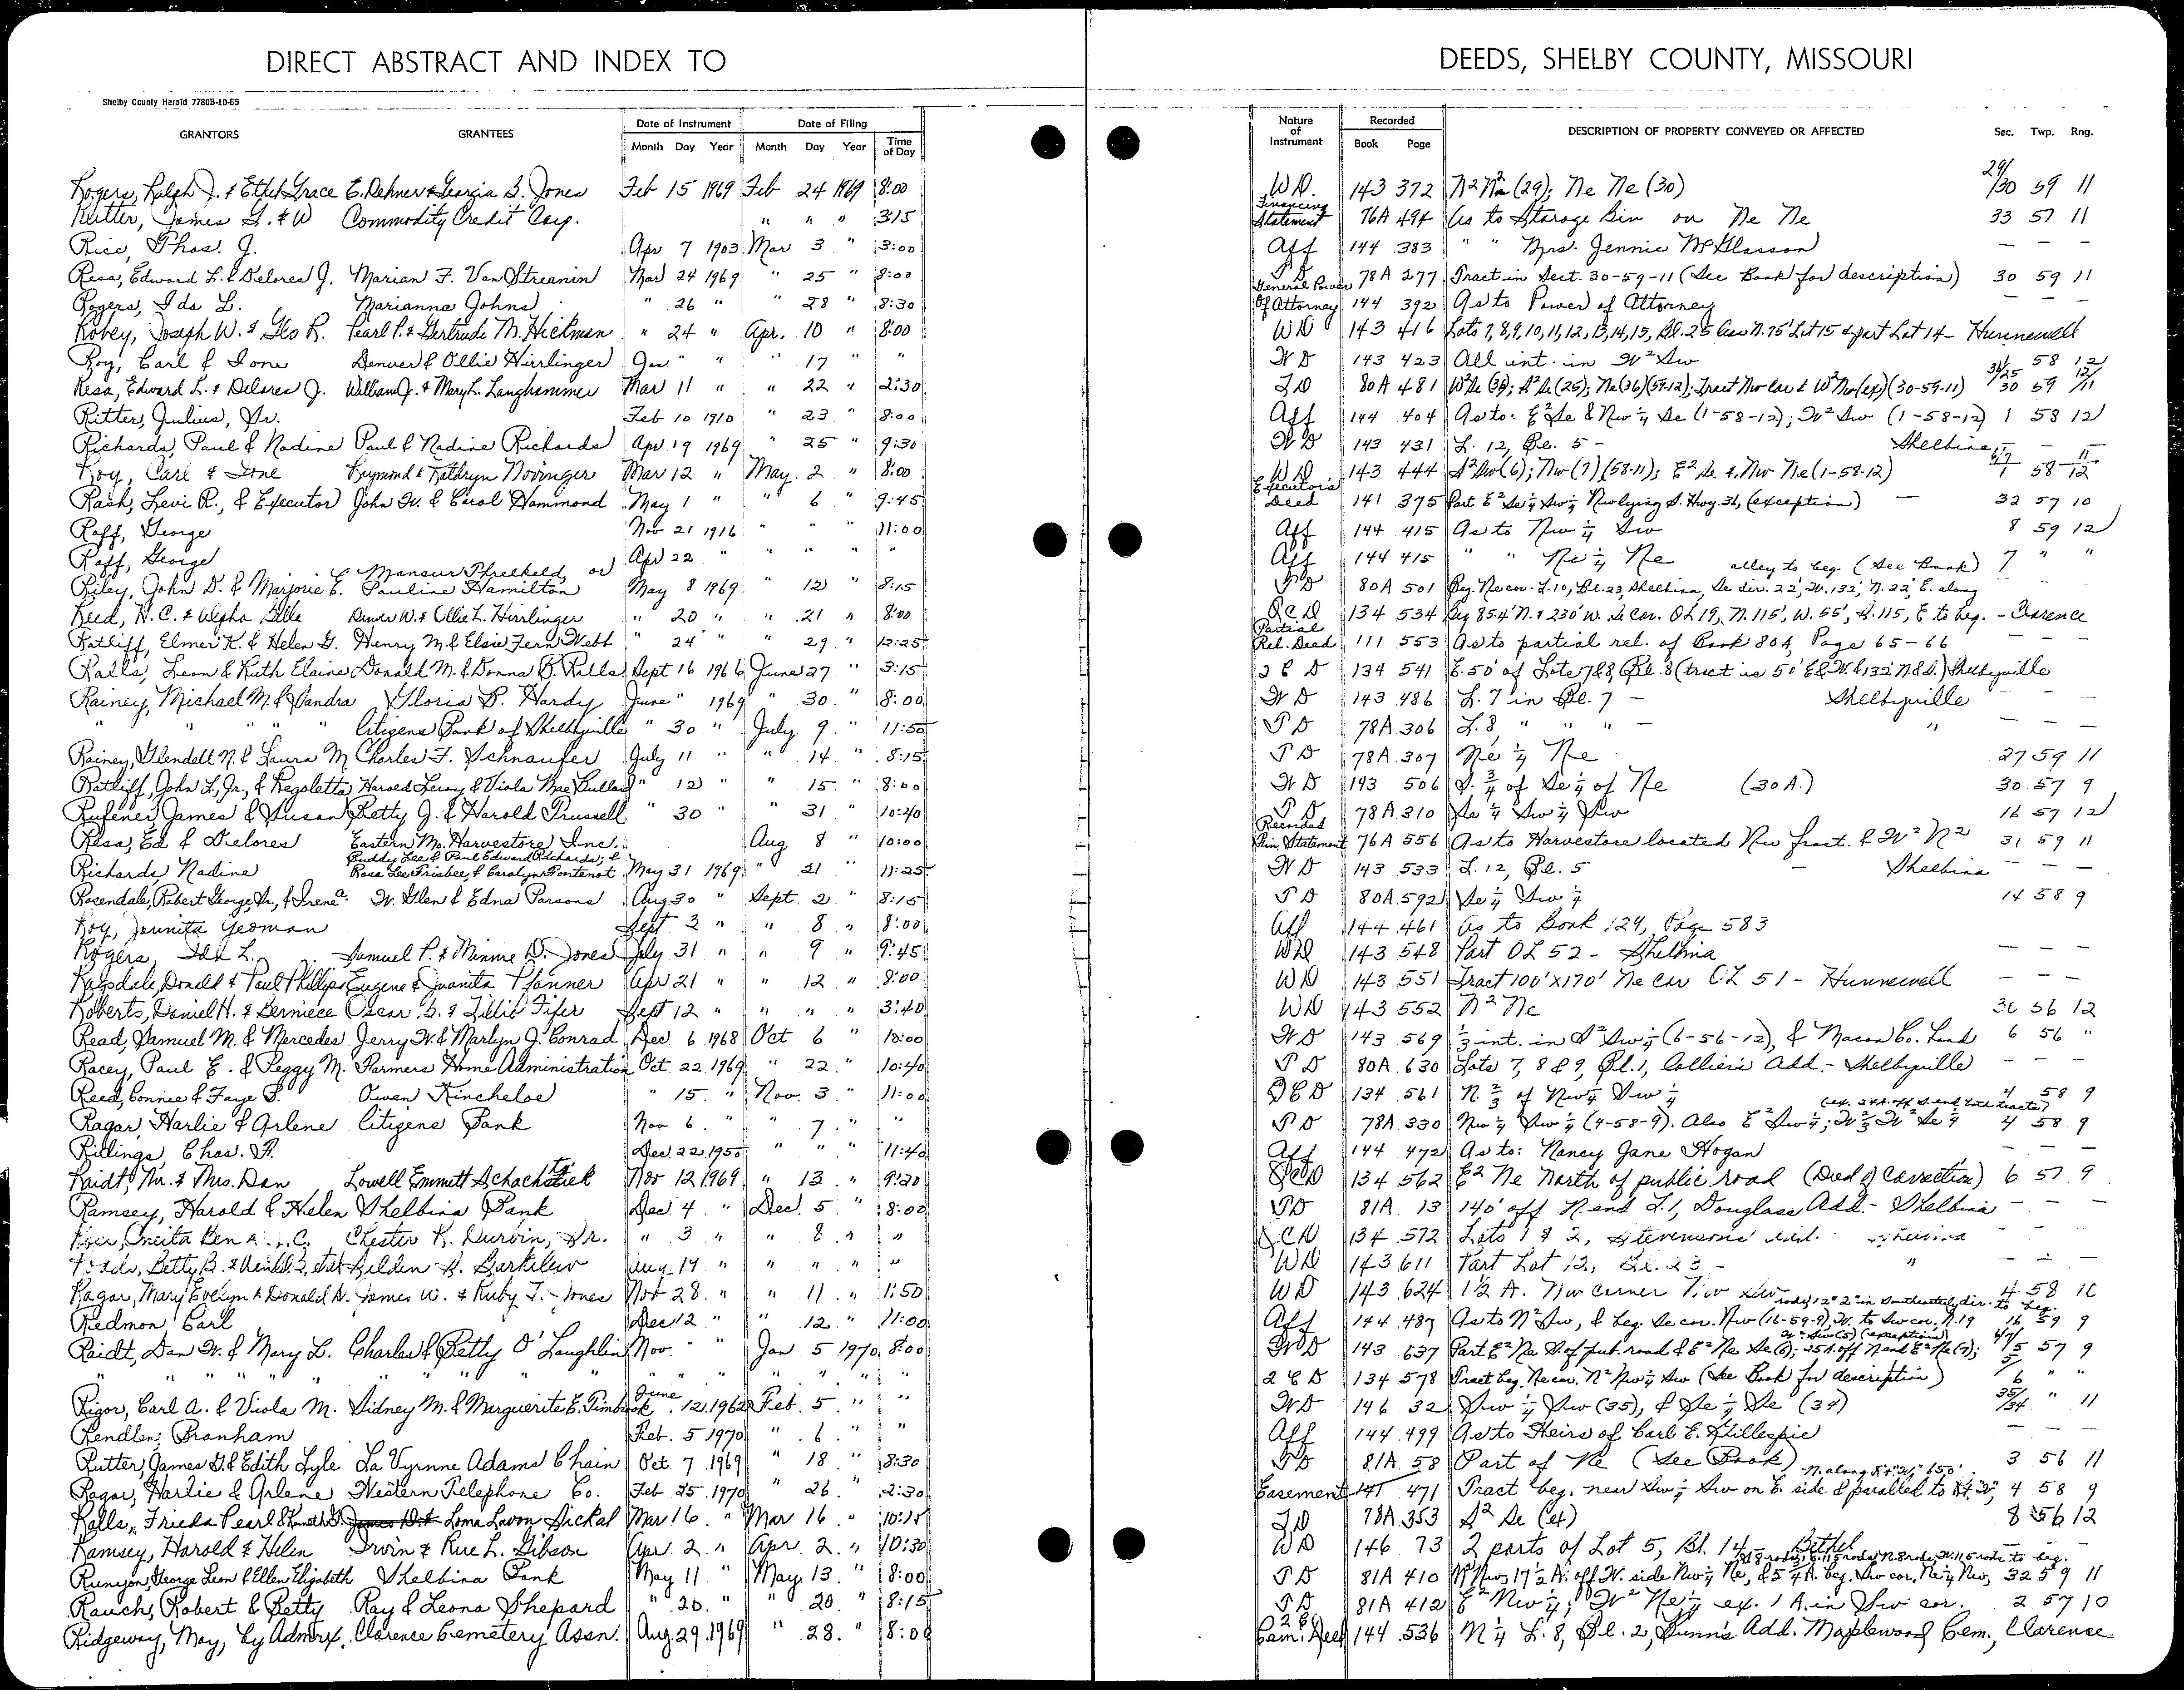 DIRECT ABSTRACT AND INDEX TO DEEDS, SHELBY COUNTY, MISSOURI
Shelby County Herald 7780B-10-65
GRANTORS GRANTEES Date of Instrument Month Day Year Date of Filing Month Day Year Time of Day Nature of Instrument Recorded Book Page DESCRIPTION OF PROPERTY CONVEYED OR AFFECTED Sec. Twp. Rng.
Rogers, Ralph J. & Ethel Grace E. Dehner & Georgia B. Jones Feb 15 1969 Feb 24 1969 8:00 W.D. 143 372 N2 N2 (29); Ne Ne (30) 29/30 59 11
Rutter, James G. & W Commodity Credit Corp. " " " 3:15 Financing Statement 76A 494 As to Storage Bin on Ne Ne 33 57 11
Rice, Thos. J. Apr 7 1903 Mar 3 " 3:00 Aff 144 383 " " Mrs. Jennie McGlasson — — —
Resa, Edward L. & Delores J. Marian F. Van Streanin Mar 24 1969 " 25 " 8:00 TD 78A 277 Tract in Sect. 30-59-11 (See Book for description) 30 59 11
Rogers, Ida L. Marianna Johns " 26 " " 28 " 8:30 General Power of Attorney 144 392 As to Power of Attorney — — —
Robey, Joseph W. & Flo R. Pearl P. & Gertrude M. Hickman " 24 " Apr. 10 " 8:00 WD 143 416 Lots 7, 8, 9, 10, 11, 12, 13, 14, 15, Bl. 25 less N. 75' Lot 15 & part Lot 14 - Hunnewell
Roy, Carl & Ione Denver & Ollie Hirrlinger Jan " " " 17 " " WD 143 423 All int. in W2 Sw 58 12
Resa, Edward L. & Delores J. William J. & Mary L. Langhammer Mar 11 " " 22 " 2:30 TD 80A 481 W2 Se (36); S2 Se (25); Ne (36) (59-12); Tract Nw cor & W2 Nw (ex) (30-59-11) 36/25 30 59 12/11
Ritter, Julius, Sr. Feb 10 1910 " 23 " 8:00 Aff 144 404 As to: E2 Se & Nw 1/4 Se (1-58-12); W2 Sw (1-58-12) 1 58 12
Richards, Paul & Nadine Paul & Nadine Richards Apr 19 1969 " 25 " 9:30 WD 143 431 L. 12, Bl. 5 - Shelbina — — —
Roy, Carl & Ione Raymond & Kathryn Novinger Mar 12 " May 2 " 8:00 WD 143 444 S2 Sw (6); Nw (7) (58-11); E2 Se & Nw Ne (1-58-12) 6/7 1 58 11 12
Rash, Levi R., & Executor John W. & Carol Hammond May 1 " " 6 " 9:45 Executor's Deed 141 375 Part E2 Se 1/4 Sw 1/4 Nw lying S. Hwy. 36, (exception) — 32 57 10
Raff, George Nov 21 1916 " " " 11:00 Aff 144 415 As to Nw 1/4 Sw 8 59 12
Raff, George Apr 22 " " " " Aff 144 415 " " Ne 1/4 Ne 7 " "
Riley, John D. & Marjorie E. C. Mansur Threlkeld, or Pauline Hamilton May 8 1969 " 12 " 8:15 TD 80A 501 Beg. Ne cor. L. 10, Bl. 23, Shelbina, Se dir. 22', W. 132', N. 22', E. along alley to beg. (See Book)
Reed, H.C. & Alpha Belle Denver W. & Ollie L. Hirrlinger " 20 " " 21 " 8:00 Q.C.D 134 534 Beg 85.4' N. & 230' W. Se cor. OL 19, N. 115', W. 55', S. 115, E to beg. - Clarence
Ratliff, Elmer K. & Helen G. Henry M. & Elsie Fern Webb " 24 " " 29 " 12:25 Partial Rel. Deed 111 553 As to partial rel. of Book 80A, Page 65-66 — — —
Ralls, Leon & Ruth Elaine Donald M. & Donna B. Ralls Sept 16 1966 June 27 " 3:15 QCD 134 541 E. 50' of Lots 7 & 8, Bl. 8 (tract is 50' E & W. & 132' N & S.) Shelbyville
Rainey, Michael M. & Sandra Gloria B. Hardy June " 1969 " 30 " 8:00 WD 143 486 L. 7 in Bl. 7 - Shelbyville — —
" " " " Citizens Bank of Shelbyville " 30 " July 9 " 11:50 TD 78A 306 L. 8, " " " - " — — —
Rainey, Glendell N. & Laura M. Charles F. Schnaufer July 11 " " 14 " 8:15 TD 78A 307 Ne 1/4 Ne 27 59 11
Ratliff, John L., Jr., & Regoletta Harold Leroy & Viola Mae Bullard " 12 " " 15 " 8:00 WD 143 506 S. 3/4 of Se 1/4 of Ne (30 A.) 30 57 9
Rufener, James & Susan Betty J. & Harold Trussell " 30 " " 31 " 10:40 TD 78A 310 Se 1/4 Sw 1/4 Sw 16 57 12
Resa, Ed & Delores Eastern Mo. Harvestore Inc. Aug 8 " 10:00 Recorded Fin. Statement 76A 556 As to Harvestore located Nw fract. & W2 N2 31 59 11
Richards, Nadine Buddy Lee & Paul Edward Richards; & Rosa Lee Frisbee, & Carolyn Fontenot May 31 1969 " 21 " 11:25 WD 143 533 L. 12, Bl. 5 - Shelbina — — —
Rosendale, Robert George, Jr., & Irene A. W. Glen & Edna Parsons Aug 30 " Sept. 2 " 8:15 TD 80A 592 Se 1/4 Sw 1/4 14 58 9
Roy, Juanita Yeoman Sept. 3 " " 8 " 8:00 Aff 144 461 As to Book 129, Page 583
Rogers, Ida L. Samuel P. & Minnie D. Jones July 31 " " 9 " 9:45 WD 143 548 Part OL 52 - Shelbina — — —
Ragsdale, Donald & Paul Phillips Eugene & Juanita Pfanner Apr 21 " " 12 " 8:00 WD 143 551 Tract 100' x 170' Ne cor OL 51 - Hunnewell — — —
Roberts, Daniel H. & Berniece Oscar G. & Lillie Fifer Sept 12 " " " " 3:40 WD 143 552 N2 Ne 36 56 12
Read, Samuel M. & Mercedes Jerry W. & Marlyn J. Conrad Dec 6 1968 Oct 6 " 10:00 WD 143 569 1/3 int. in S2 Sw 1/4 (6-56-12), & Macon Co. Land 6 56 "
Racey, Paul E. & Peggy M. Farmers Home Administration Oct. 22 1969 " 22 " 10:40 TD 80A 630 Lots 7, 8 & 9, Bl. 1, Collier's Add. - Shelbyville — —
Reed, Connie & Faye B. Owen Kincheloe " 15 " Nov. 3 " 11:00 QCD 134 561 N. 2/3 of Nw 1/4 Sw 1/4 4 58 9
Ragar, Harlie & Arlene Citizens Bank Nov 6 " " 7 " " TD 78A 330 Nw 1/4 Sw 1/4 (4-58-9). Also E2 Sw 1/4; W 2/3 W2 Se 1/4 (ex. 24 A. off S. end both tracts) 4 58 9
Rillings, Chas. F. Dec 22 1950 " " " 11:40 Aff 144 472 As to: Nancy Jane Hogan — — —
Raidt, Mr. & Mrs. Dan Lowell Emmett Schachtsiek Nov 12 1969 " 13 " 9:20 QCD 134 562 E2 Ne North of public road (Deed of Correction) 6 57 9
Ramsey, Harold & Helen Shelbina Bank Dec 4 " Dec. 5 " 8:00 TD 81A 13 140' off N. end L. 1, Douglass Add. - Shelbina — — —
Oneita Chester R. Durbin, Sr. " 3 " " 8 " " QCD 134 572 Lots 1 & 2, Stevenson's Add. - Shelbina
Betty B. Belden Aug 19 " " " " " WD 143 611 Part Lot 12, Bl. 23 - " — — —
Ragar, Mary Evelyn & Donald D. James W. & Ruby T. Jones Nov 28 " " 11 " 1:50 WD 143 624 1 1/2 A. Nw corner Nw Sw 4 58 10
Redmon Carl Dec 12 " " 12 " 11:00 Aff 144 487 As to N2 Sw, & beg. Se cor. Nw (16-59-9), W. to Sw cor, N. 19 rods, 12" 2" in Southeasterly dir. to beg. 16 59 9
Raidt, Dan W. & Mary L. Charles & Betty O'Laughlin Nov " " Jan 5 1970 8:00 WD 143 637 Part E2 Ne S. of pub. road & E2 Ne Se (6); 25 A. off N end E2 Ne (7); W2 Sw (5) (exception) 57 9
" " " " " " " " " " " " " QCD 134 578 Tract beg. Ne cor. N2 Nw 1/4 Sw (See Book for description) 6 " "
Rigor, Carl A. & Viola M. Sidney M. & Marguerite E. Timbrook June 12 1962 Feb. 5 " " WD 146 32 Sw 1/4 Sw (35), & Se 1/4 Se (34) 35/34 " 11
Rendlen, Branham Feb. 5 1970 " 6 " " Aff 144 499 As to Heirs of Carl E. Gillespie — —
Rutter, James G. & Edith Lyle La Vyrnne Adams Chain Oct. 7 1969 " 18 " 8:30 TD 81A 58 Part of Ne (See Book) 3 56 11
Ragar, Harlie & Arlene Western Telephone Co. Feb 25 1970 " 26 " 2:30 Easement 141 471 Tract beg. near Sw 1/4 Sw on E. side & parallel to Rt "W", N. along Rt "W", 650' 4 58 9
Ralls, Frieda Pearl & Kenneth G. Loma Lavon Sickal Mar 16 " Mar 16 " 10:15 TD 78A 353 S2 Se (ex) 8 56 12
Ramsey, Harold & Helen Irvin & Rue L. Gibson Apr. 2 " Apr. 2 " 10:30 WD 146 73 2 parts of Lot 5, Bl. 14 - Bethel — —
Runyon, George Leon & Ellen Elizabeth Shelbina Bank May 11 " May 13 " 8:00 TD 81A 410 N2 Nw, 17 1/2 A. off W. side Nw 1/4 Ne, & 5 3/4 A. beg. Sw cor. Ne 1/4 Nw, S. 8 rods, E. 115 rods, N. 8 rods, W. 115 rods to beg. 32 59 11
Rauch, Robert & Betty Ray & Leona Shepard " 20 " " 20 " 8:15 TD 81A 412 E2 Nw 1/4; W2 Ne 1/4 ex. 1 A. in Sw cor. 2 57 10
Ridgeway, May, by Admrx. Clarence Cemetery Assn. Aug. 29 1969 " 28 " 8:00 QC Cem. Deed 144 536 N 1/4 L. 8, Bl. 2, Bunn's Add. Maplewood Cem., Clarence